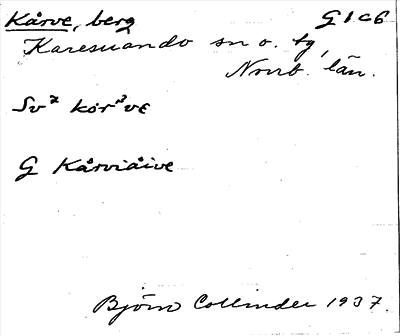 Kårve, berg G1c6
Karesuando sn o. tg,
Norrb. län.
Sv² kor²ve
G Kårviåive
Björn Collinder 1937.